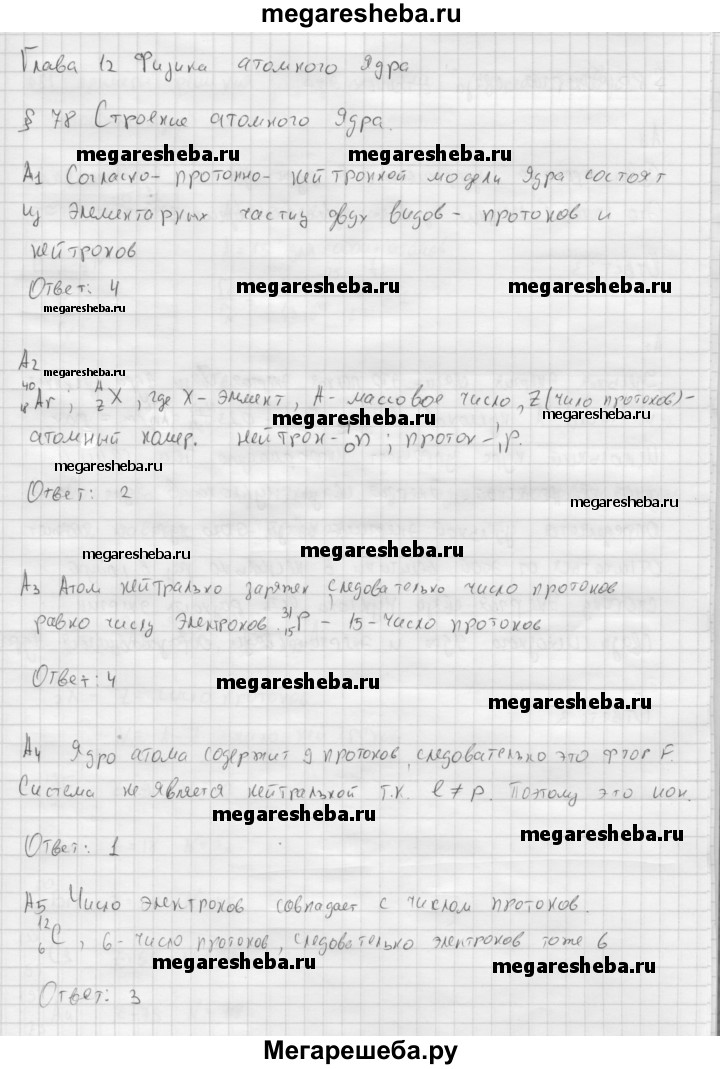 megaresheba.ru
Глава 12 Физика атомного Ядра
§ 78 Строение атомного Ядра.
megaresheba.ru megaresheba.ru
А1 Согласно- протонно- нейтронной модели Ядра состоят
из Элементарных частиц двух видов - протонов и
нейтронов
Ответ: 4 megaresheba.ru megaresheba.ru
megaresheba.ru
А2 megaresheba.ru
⁴⁰₁₈Ar; ᴬ_Z X, где X- Элемент, А- массовое число, Z(число протонов)-
атомный номер. нейтрон- ¹₀n; протон- ¹₁p.
megaresheba.ru
Ответ: 2 megaresheba.ru
megaresheba.ru megaresheba.ru
А3 Атом нейтрально заряжен следовательно число протонов
равно числу Электронов. ³¹₁₅P - 15- число протонов
Ответ: 4 megaresheba.ru megaresheba.ru
А4 Ядро атома содержит 9 протонов, следовательно это фтор F.
Система не является нейтральной т.к. e≠p. Поэтому это ион.
megaresheba.ru megaresheba.ru
Ответ: 1
А5 Число электронов совпадает с числом протонов.
¹²₆C, 6- число протонов, следовательно электронов тоже 6
megaresheba.ru megaresheba.ru
Ответ: 3
Мегарешеба.ру